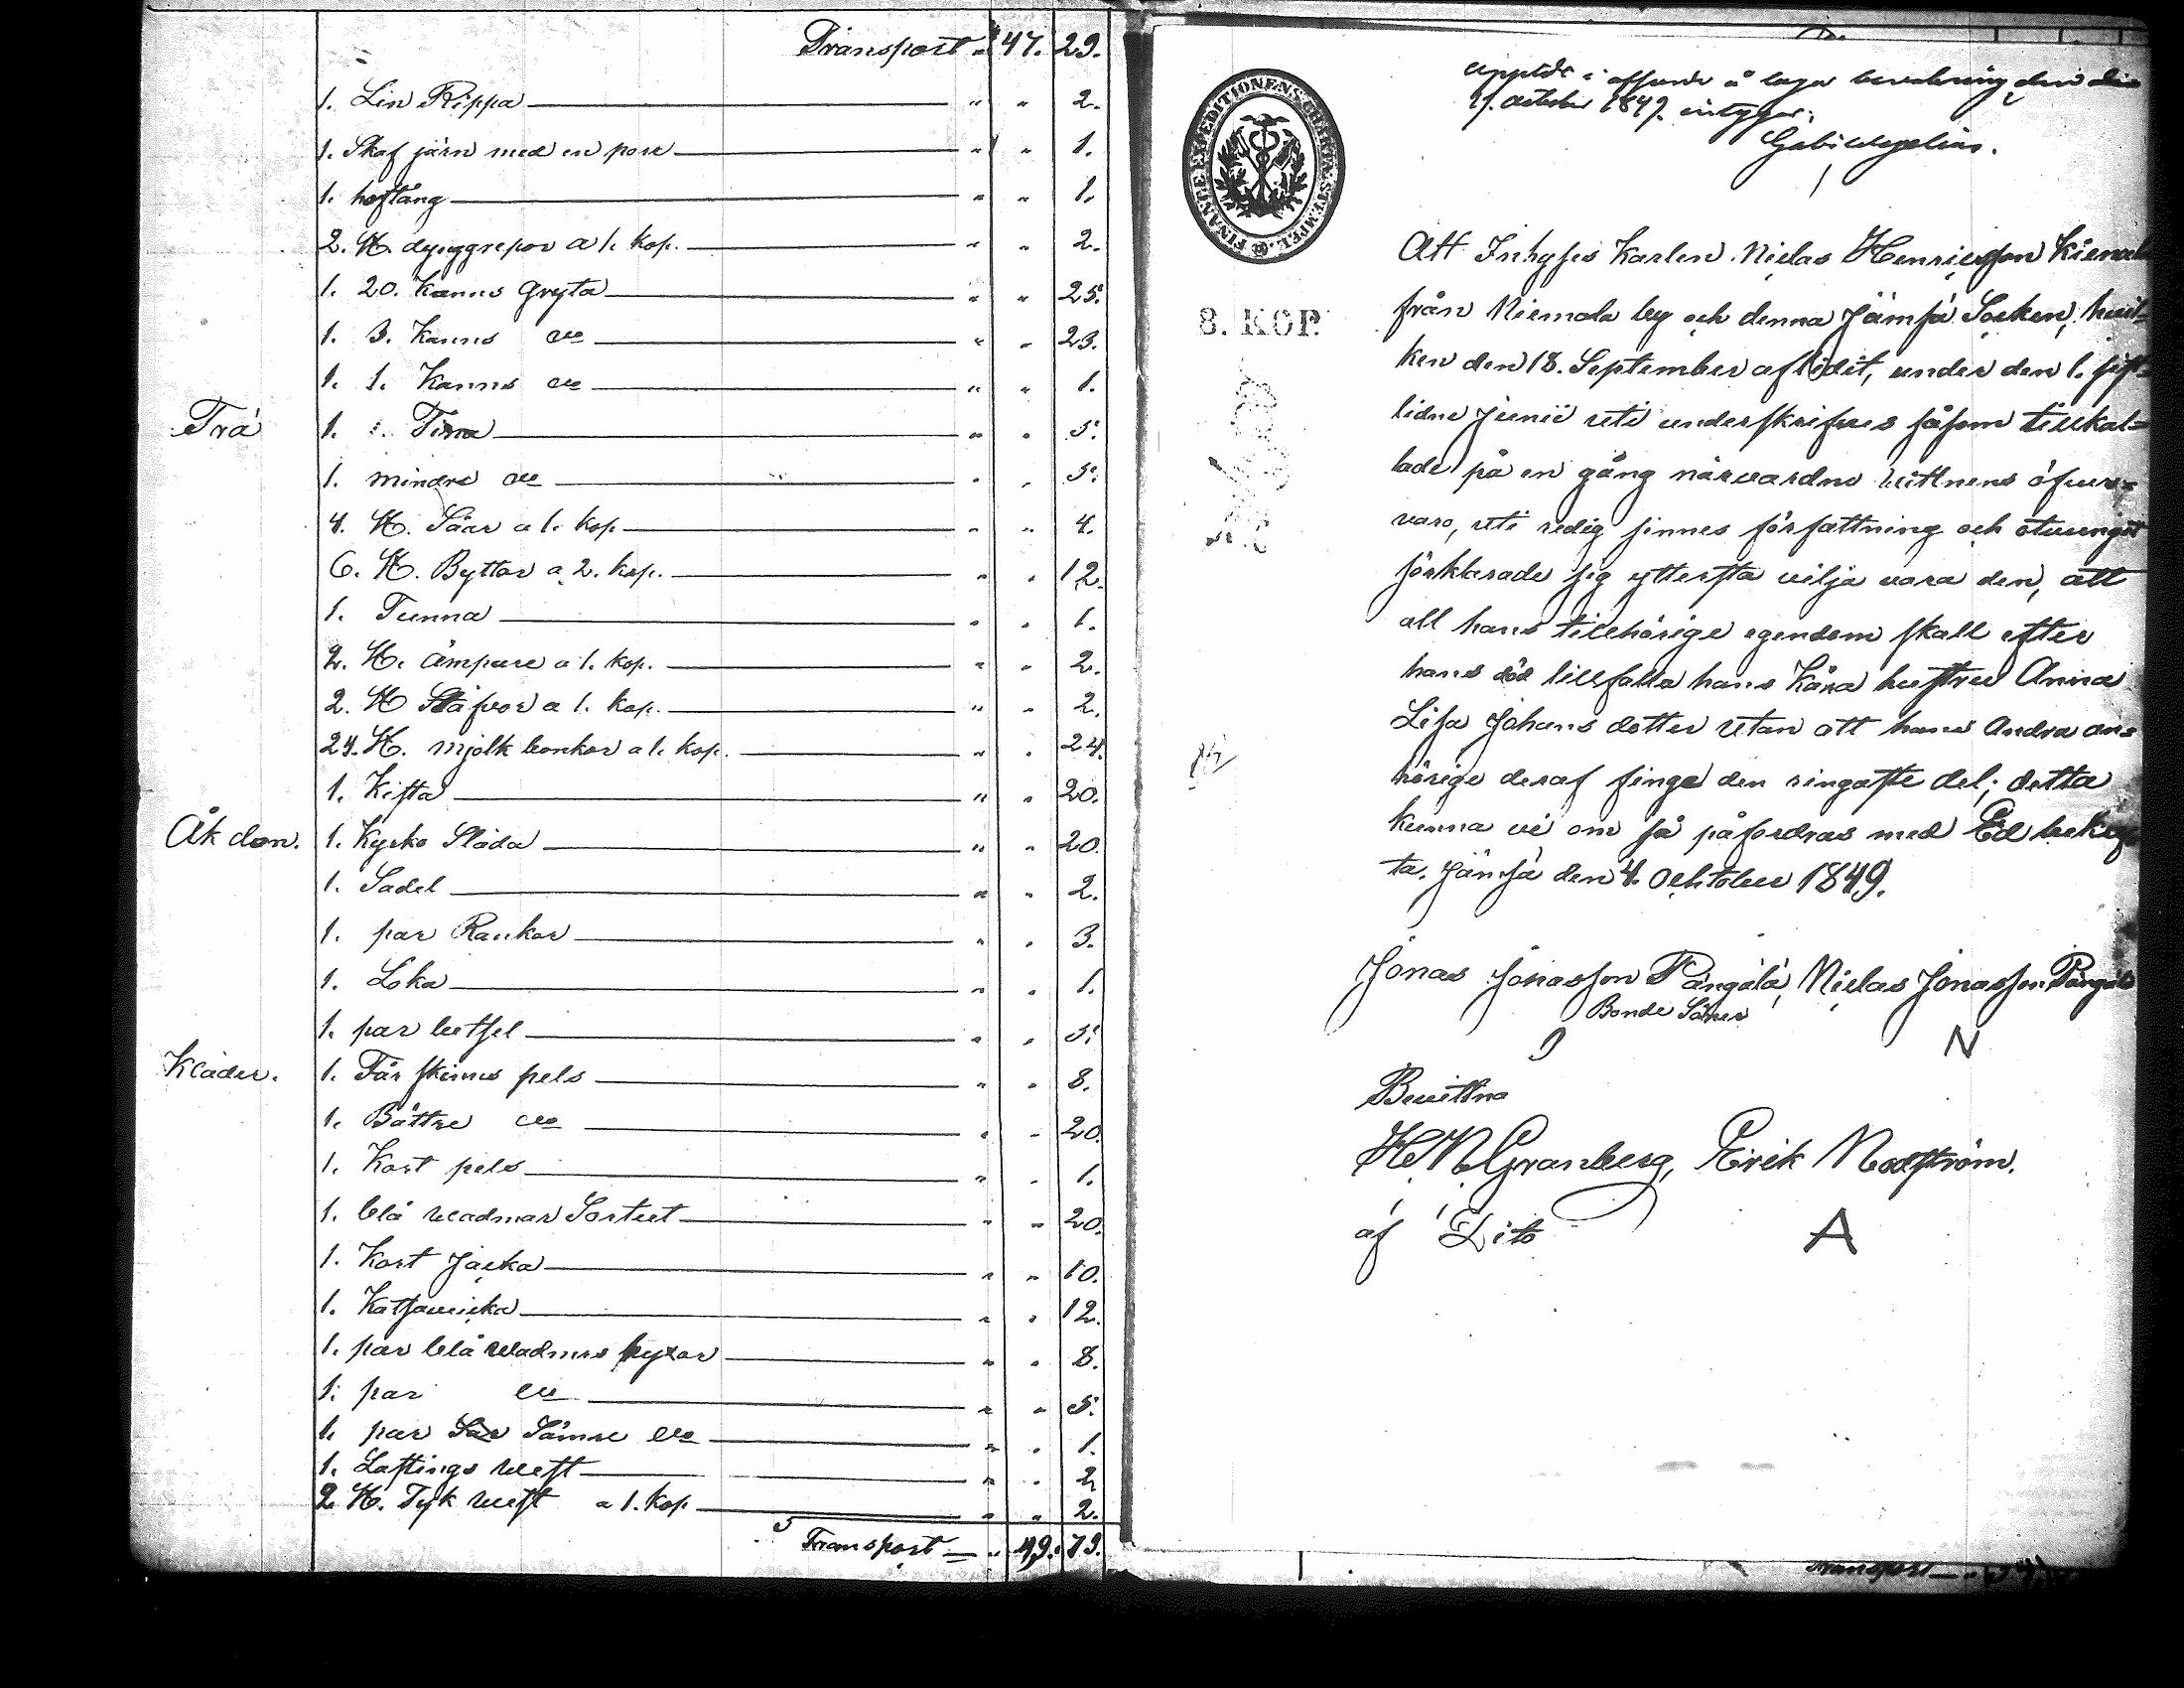 Transport " 47. 29.
1. Lin Rippa " " 2.
1. Skaf järn med en pore " " 1.
1. hoftång " " 1.
2. St. dynggrepor a 1. kop. " " 2.
1. 20. Kanns Gryta " " 25.
1. 3. Kanns do " " 23.
1. 1. Kanns do " " 1.
Trä 1. Tina " " 5.
1. mindre do " " 5.
4. St. Såar a 1. kop " " 4.
6. St. Byttor a 2. kop. " " 12.
1. Tunna " " 1.
2. St. ämpare a 1. kop. " " 2.
2. St Stäfvor a 1. kop. " " 2.
24. St. mjölk bonkar a 1. kop. " " 24.
1. Kista " " 20.
Åk don. 1. Kyrko Släda " " 20.
1. Sadel " " 2.
1. par Rankor " " 3.
1. Loka " " 1.
1. par betsel " " 5.
Kläder. 1. Får skinns pels " " 8.
1. Bättre do " " 20.
1. Kort pels " " 1.
1. blå wadmar Sortut " " 20.
1. Kort Jacka " " 10.
1. Katsaweicka " " 12.
1. par blå wadmars byxor " " 8.
1. par do " " 5.
1. par Sämre do " " 1.
1. Lastings west " " 2
2 St. Tyk west a 1. kop " " 2.
Transport " 49. 73.
FINANCE EXPEDITIONENS CHARTÆ STEMPEL
8. KOP.
i å laga bevakning den
1849. intygar:
Att Inhyses Karlen Niclas Henricsson
från Niemala by och denna Jämsä Socken, hvil-
ken den 18. September aflidit, under den 1. sist-
lidne Junii uti underskrifnes såsom tillkal-
lade på en gång närvardne wittnens öfver-
varo, uti redig sinnes författning och otvunget
förklarade sig yttersta vilja vara den, att
all hans tillhörige egendom skall efter
hans död tillfalla hans Kära hustru Anna
Lisa Johans dotter utan att hans Andra an-
hörige deraf finge den ringaste del; detta
kunna vi om så påfordras med Ed bekräf
ta. Jämsä den 4. Ochtober 1849.
Jonas Jonasson Pängälä, Niclas Jonasson Pängälä
Bonde Söner
N
Bevittna
H. N. Granberg, Erik Nordström.
af Dito A
Transport